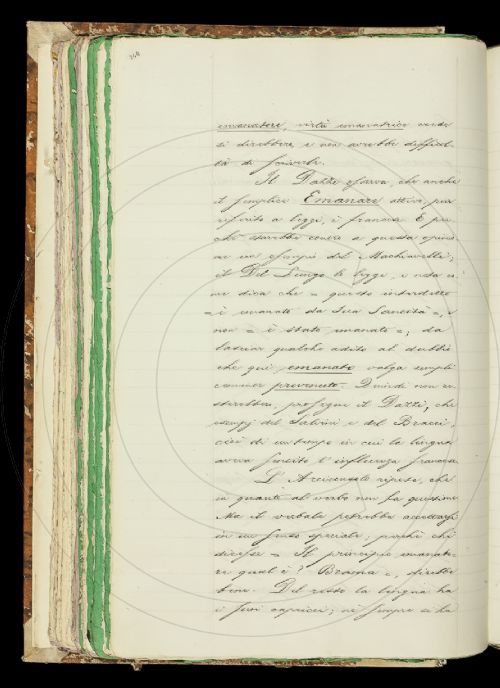 368
emanatore, virtù emanatrice onde
si direbbero, e non avrebbe difficol-
tà di scriverle.
Il Dazzi osserva, che anche
il semplice Emanare attivo, pur
riferito a legge, è francese. E per-
chè starebbe contro a questa opinio-
ne un esempio del Machiavelli;
il Del Lungo lo legge, e nota co-
me dica che = questo interdetto
= è emanato da Sua Santità =, e
non = è stato emanato =; da
lasciar qualche adito al dubbio
che qui emanato valga sempli-
cemente provenuto. Quindi non re-
sterebbero, prosegue il Dazzi, che
esempj del Salvini e del Bracci,
cioè di un tempo in cui la lingua
aveva sentito l'influenza francese.
L'Arciconsolo ripete, che
in quanto al verbo non fa questione
Ma il verbale potrebbe accettarsi
in un senso speciale; perchè chi
dicesse = Il principio emanato-
re qual è? Brama =, direbbe
bene. Del resto la lingua ha
i suoi capricci; nè sempre si ha